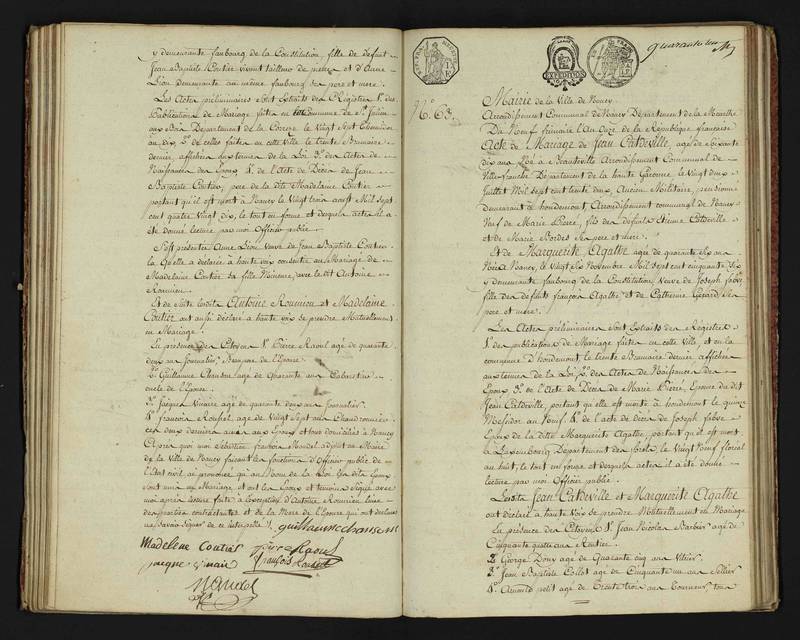 y demeurante faubourg de la Constitution, fille de defunt
Jean Baptiste Coutier vivant tailleur de pierre et d'Anne
Lion demeurante au même faubourg ses pere et mere.
Les Actes preliminaires sont Extraits des Registres 1º. des
Publications de Mariage faites en
Département de la le Vingt Sept
au dix 2º. de celles faites en cette Ville le trente Brumaire
dernier, affichées aux termes de la Loi 3º. des Actes de
Naissances des Epoux 4º. de l'Acte de Décès de Jean
Baptiste Coutier, pere de la dite Madelaine Coutier
portant qu'il est mort à Nancy le Vingt trois aoust Mil Sept
cent quatre Vingt dix, le tout en forme et desquels actes il a
été donné lecture par moi Officier public.
S'est presentée Anne Lion Veuve de Jean Baptiste Coutier
laquelle a declarée à haute voix consentir au Mariage de
Madelaine Coutier sa fille Mineure, avec le dit Antoine
Roumieu
Et de suite lesdits Antoine Roumieu et Madelaine
Coutier ont aussi declaré à haute voix se prendre Mutuellement
en Mariage.
En presence des Citoyens 1º. Pierre Raoul agé de quarante
deux ans Journalier, Beaupere de l'Epouse
2º. Guillaume Chanson agé de Quarante ans Cabaretier
oncle de l'Epouse.
3º. Jacque Vinaire agé de quarante deux ans Journalier
4º. françois Roussel, agé de Vingt Sept ans Chaudronnier
ces deux derniers amis aux Epoux et tous domiciliés à Nancy
Après quoi moi Sebastien françois Mandel adjoint au Maire
de la Ville de Nancy faisant les fonctions d'Officier public de
l'Etat civil, ai prononcé qu'au Nom de la Loi les dits Epoux
sont unis en Mariage et ont les Epoux et témoins Signé avec
moi après lecture faite à l'exception d'Antoine Roumieu l'une
des parties contractantes et de la Mere de l'Epouse qui ont declaré
ne savoir signer de ce interpellé guillaume chanson
Madelene Coutier pierre Raoul
jacque Vinair françois Roussel
Mandel
EXPEDITION
quarante un
Nº. 63.
Mairie de la Ville de Nancy
Arrondissement Communal de Nancy Département de la Meurthe
Du Neuf frimaire l'An Onze de la Republique française
Acte de Mariage de Jean Catdeville, agé de soixante
dix ans Né à Beauteville Arrondissement Communal de
Ville franche Département de la haute Garonne, le Vingt deux
Juillet Mil Sept cent trente deux, Ancien Militaire, pensionné
demeurant à houdemont, Arrondissement communal de Nancy
Veuf de Marie Pierré, fils des défunts Etienne Catdeville
et de Marie Bordes ses pere et mere.
Et de Marguerite Agathe agée de quarante six ans
Née à Nancy, le Vingt six Novembre Mil Sept cent cinquante six
y demeurante faubourg de la Constitution, Veuve de Joseph fabse
fille des defunts françois Agathe et de Catherine Gerard ses
pere et mere.
Les Actes préliminaires sont Extraits des Registres
1º. des publications de Mariage faites en cette Ville, et en la
commune d'houdemont le trente Brumaire dernier affichées
aux termes de la Loi, 2º. des Actes de Naissances des
Epoux 3º. de l'Acte de Décès de Marie Pierré, Epouse du dit
Jean Catdeville, portant qu'elle est morte à houdemont le quinze
Messidor an Neuf 4º. de l'acte de décès de Joseph fabse
Epoux de la ditte Marguerite Agathe, portant qu'il est mort
à Luxembourg Département des forêts, le Vingt Neuf floréal
an huit, le tout en forme et desquels actes il a été donné
lecture par moi Officier public.
Lesdits Jean Catdeville et Marguerite Agathe
ont déclaré à haute voix se prendre Mutuellement en Mariage
En presence des Citoyens 1º. Jean Nicolas Barbier agé de
Cinquante quatre ans Rentier.
2º. George Doux agé de Quarante cinq ans Vitrier
3º. Jean Baptiste Collot agé de Cinquante un ans Sellier
4º. Arnould petit agé de Trente trois ans Tourneur, tous